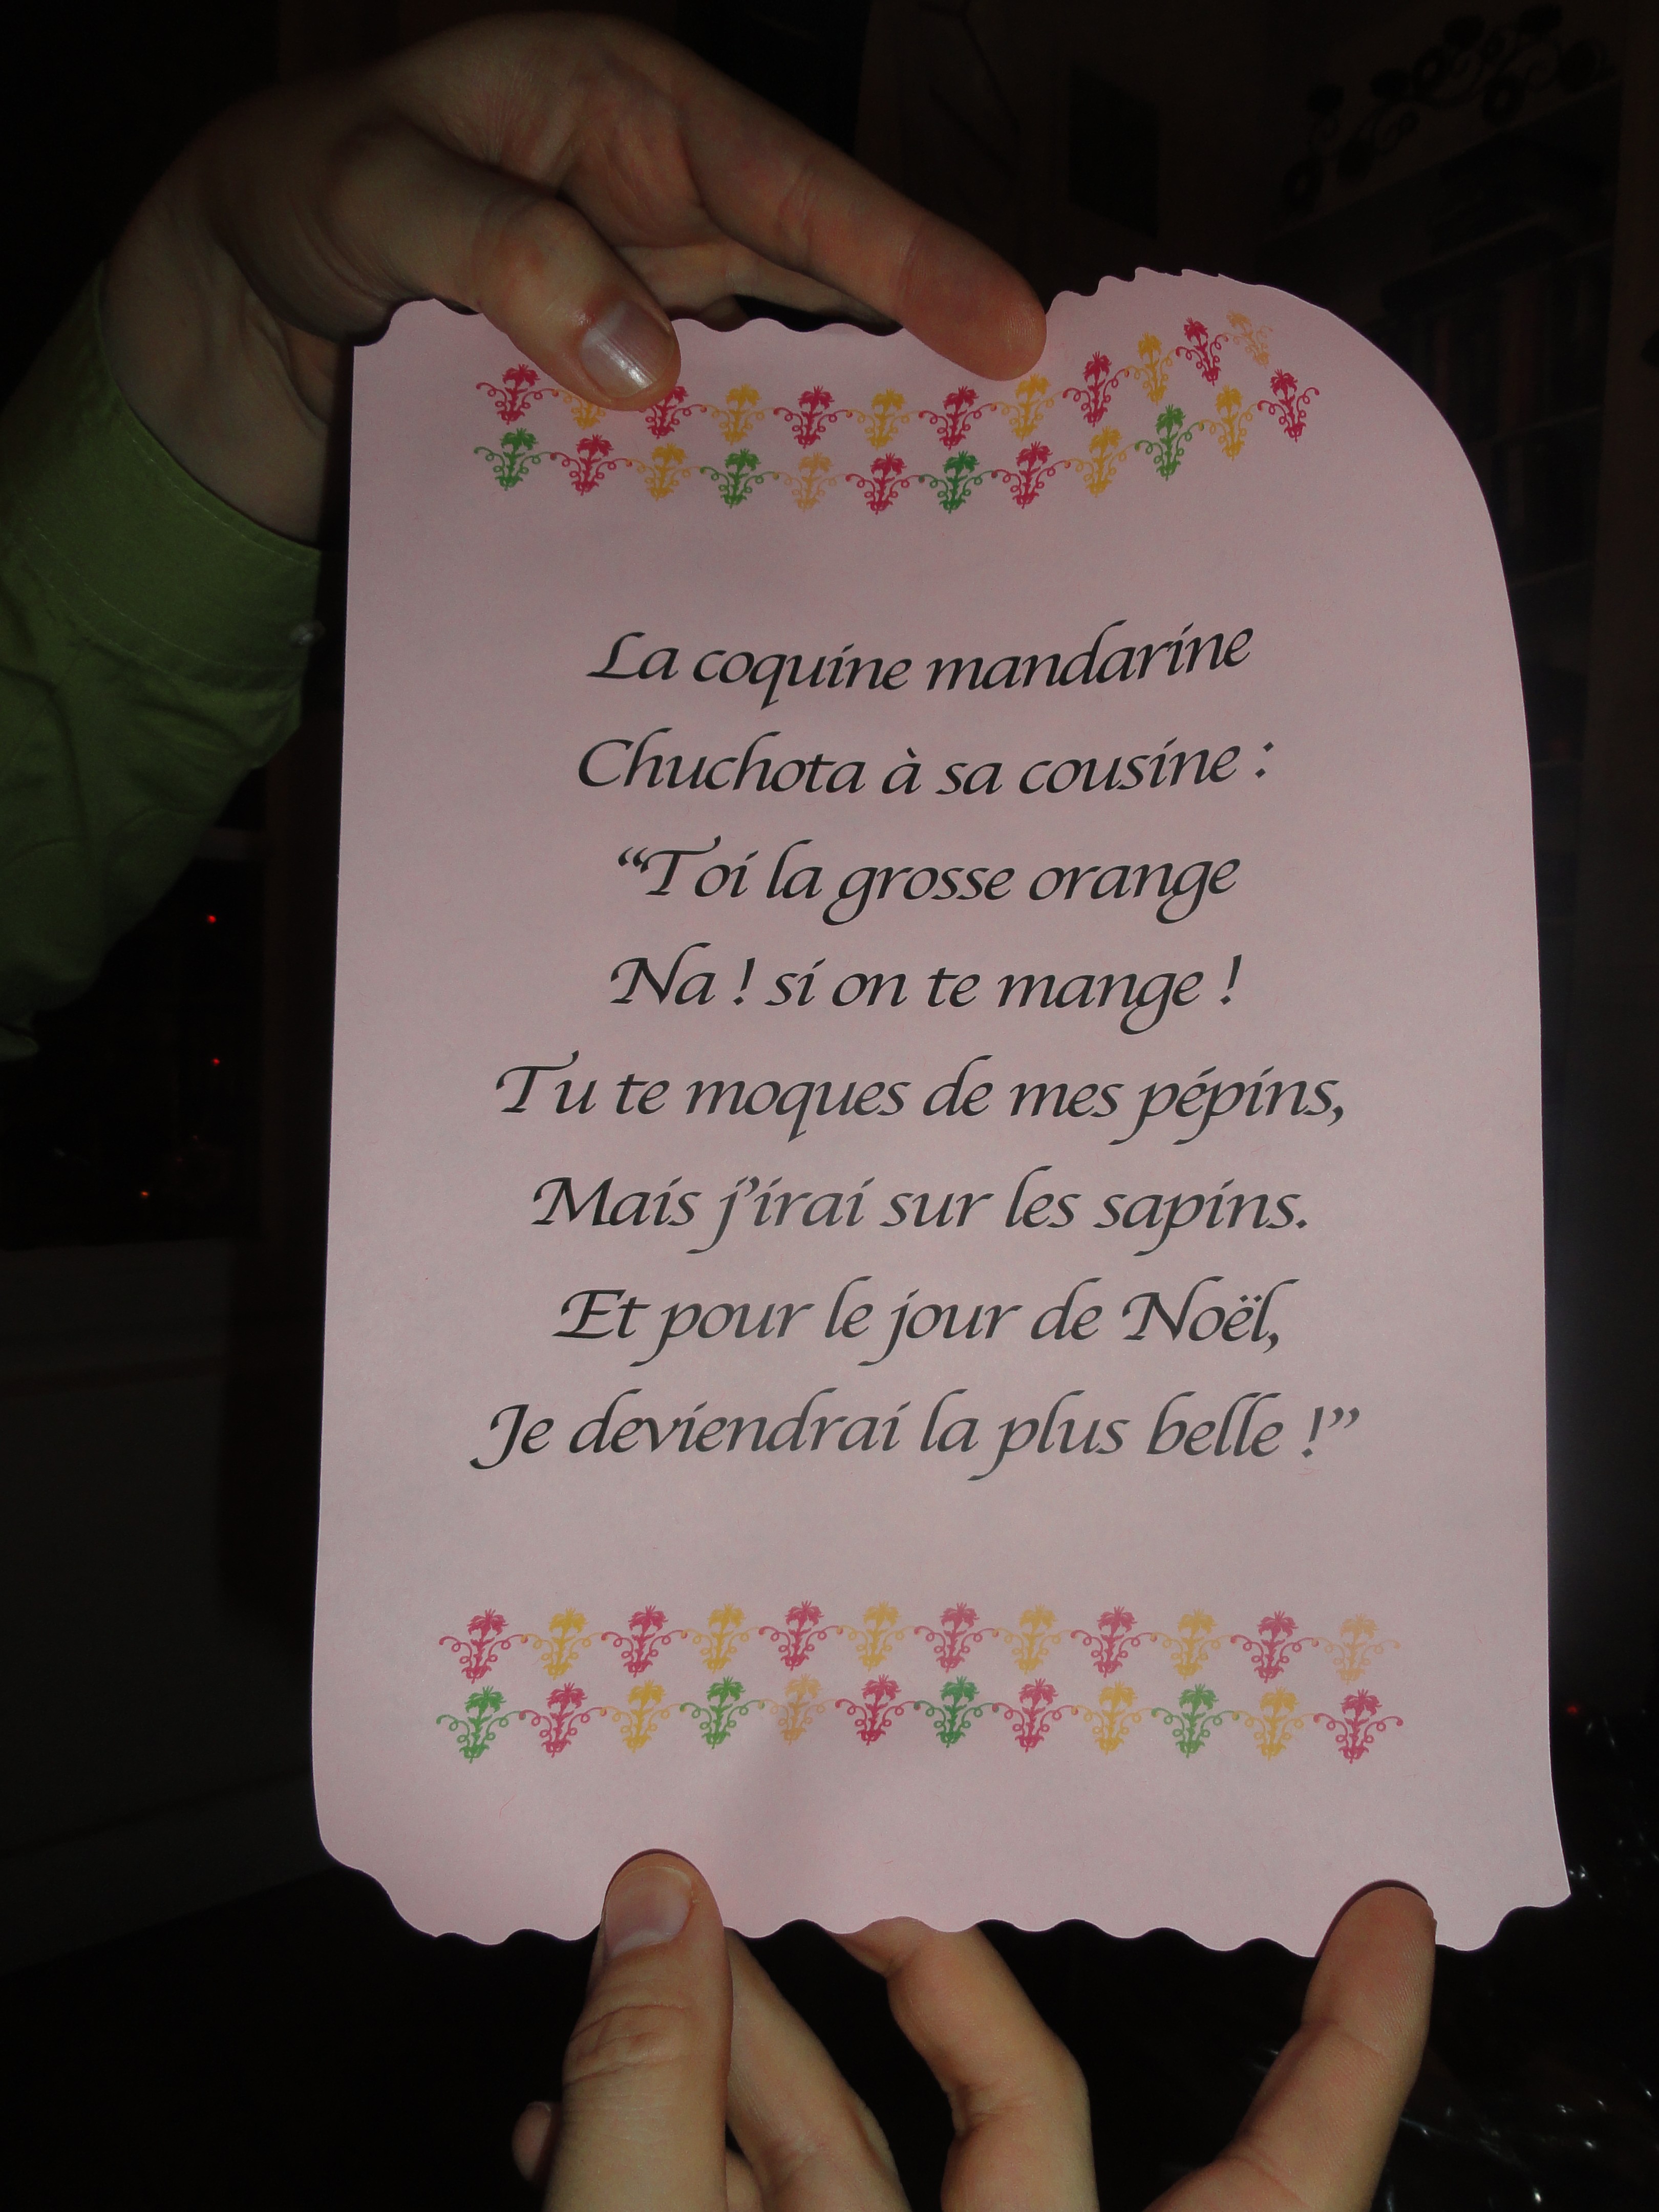 La coquine mandarine
Chuchota à sa cousine :
“Toi la grosse orange
Na ! si on te mange !
Tu te moques de mes pépins,
Mais j’irai sur les sapins.
Et pour le jour de Noël,
Je deviendrai la plus belle !”